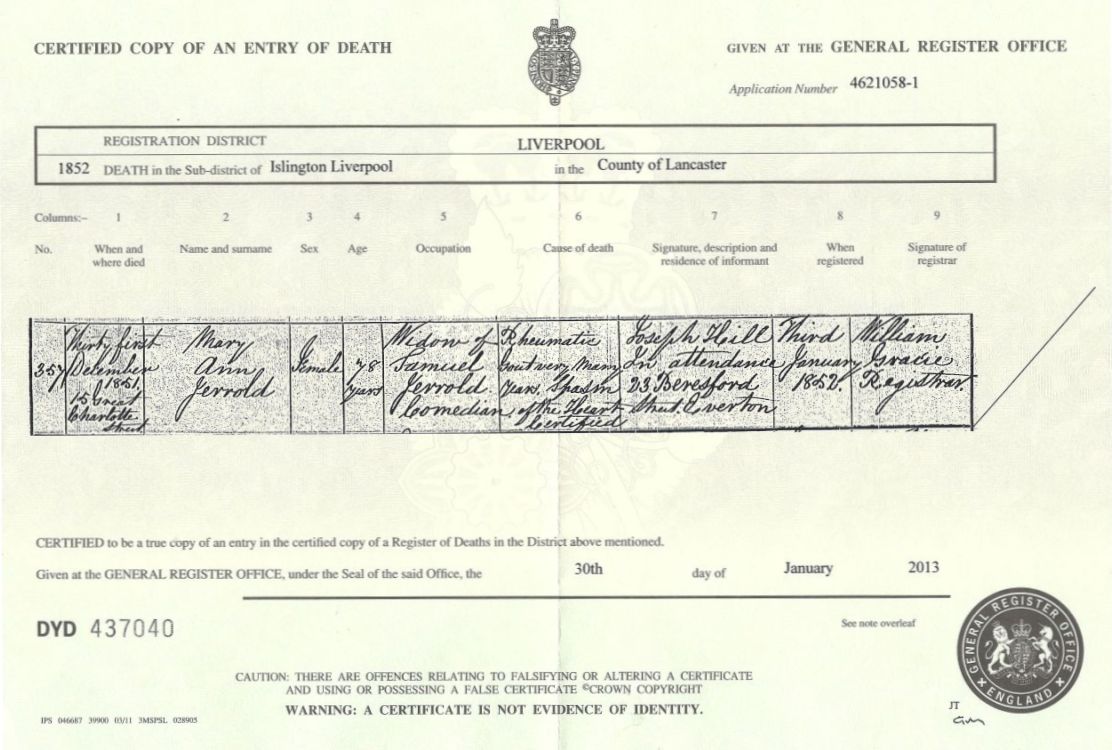 CERTIFIED COPY OF AN ENTRY OF DEATH
GIVEN AT THE GENERAL REGISTER OFFICE
Application Number 4621058-1
REGISTRATION DISTRICT LIVERPOOL
1852 DEATH in the Sub-district of Islington Liverpool in the County of Lancaster
Columns:– 1 2 3 4 5 6 7 8 9
No. When and where died Name and surname Sex Age Occupation Cause of death Signature, description and residence of informant When registered Signature of registrar
357
Thirty first
December
1851,
15 Great
Charlotte
Street
Mary
Ann
Jerrold
Female
78
years
Widow of
Samuel
Jerrold
Comedian
Rheumatic
Gout very Many
Years. Spasm
of the Heart
Certified
Joseph Hill
In attendance
23 Beresford
Street. Everton
Third
January
1852.
William
Gracie
Registrar.
CERTIFIED to be a true copy of an entry in the certified copy of a Register of Deaths in the District above mentioned.
Given at the GENERAL REGISTER OFFICE, under the Seal of the said Office, the 30th day of January 2013
DYD 437040
See note overleaf
CAUTION: THERE ARE OFFENCES RELATING TO FALSIFYING OR ALTERING A CERTIFICATE
AND USING OR POSSESSING A FALSE CERTIFICATE ©CROWN COPYRIGHT
WARNING: A CERTIFICATE IS NOT EVIDENCE OF IDENTITY.
IPS 046687 39900 03/11 3MSPSL 028905
GENERAL REGISTER OFFICE
ENGLAND
JT